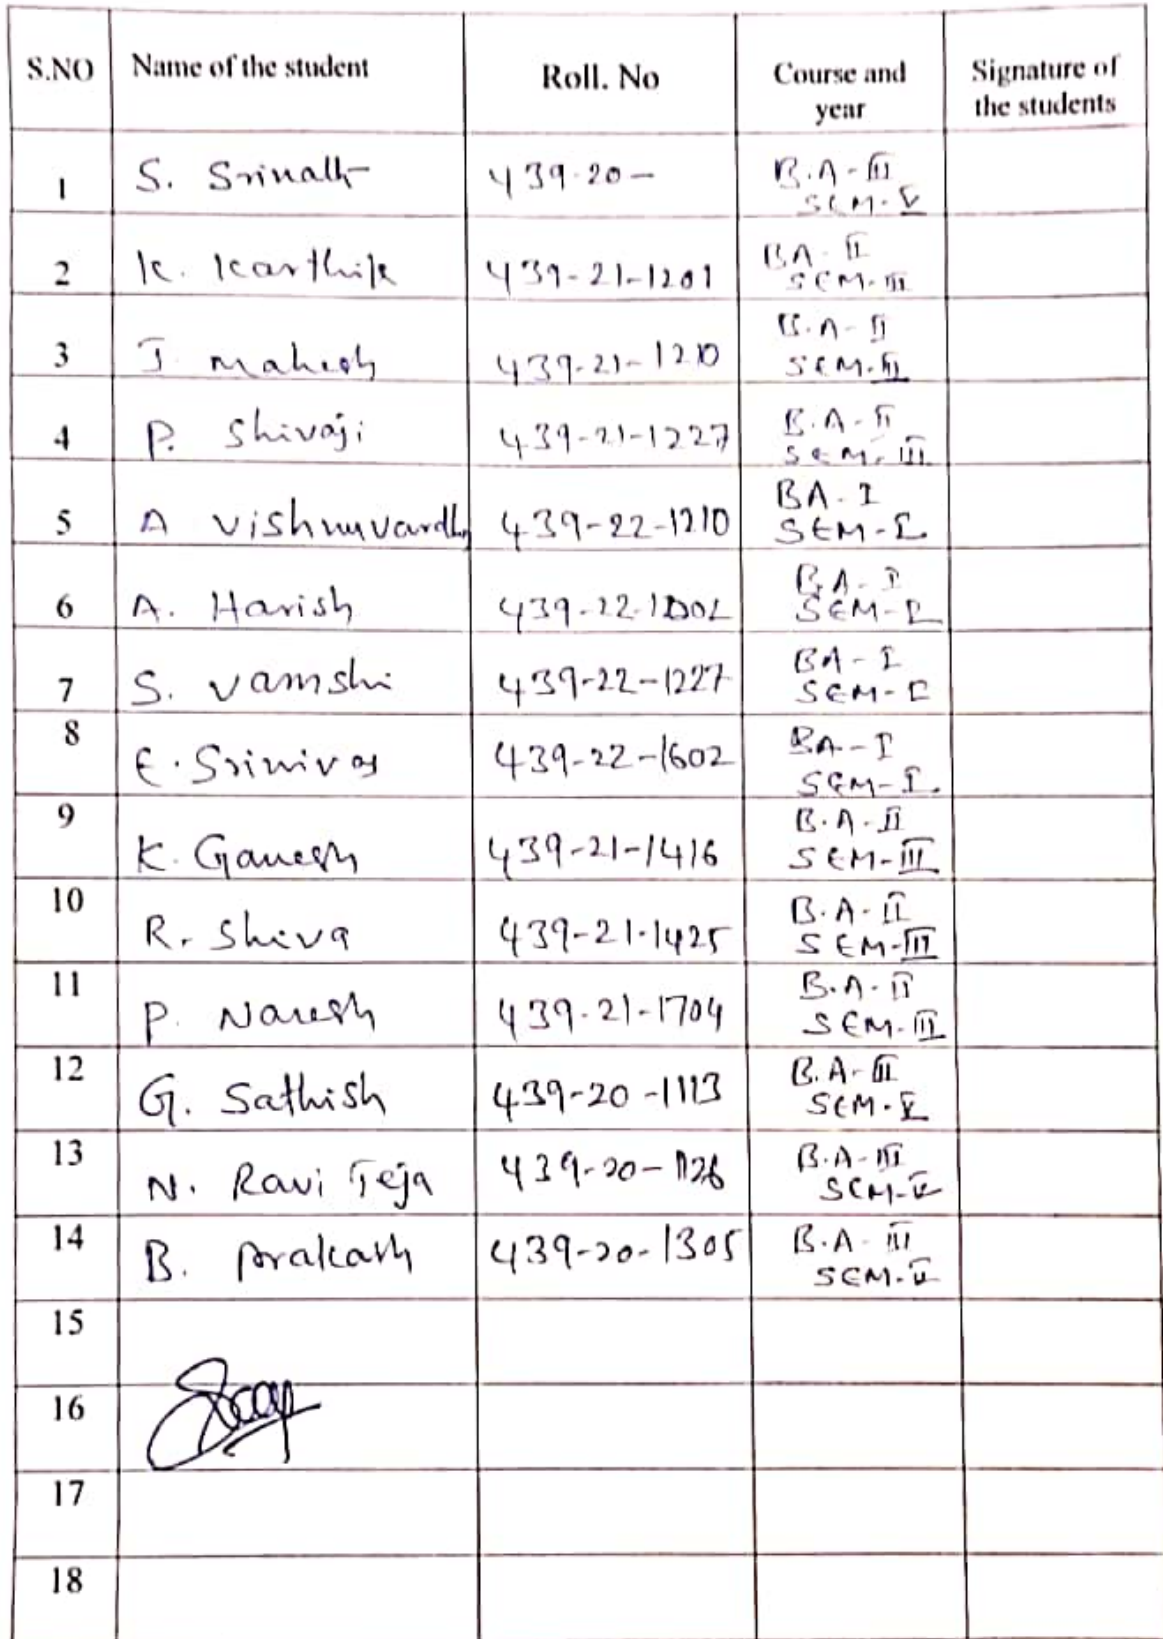 S.NO Name of the student Roll. No Course and year Signature of the students
1 S. Srinath 439-20- B.A-III
SEM-V
2 K. Karthik 439-21-1201 BA-II
SEM-III
3 J. Mahesh 439-21-1210 B.A-II
SEM-III
4 P. Shivaji 439-21-1227 B.A-II
SEM-III
5 A Vishnuvardh 439-22-1210 BA-I
SEM-I
6 A. Harish 439-22- B.A-I
SEM-I
7 S. Vamshi 439-22-1227 BA-I
SEM-I
8 E. Srinivas 439-22-1602 BA-I
SEM-I.
9 K. Ganesh 439-21-1416 B.A-II
SEM-III
10 R. Shiva 439-21-1425 B.A-II
SEM-III
11 P. Naresh 439-21-1704 B.A-II
SEM-III
12 G. Sathish 439-20-1113 B.A-III
SEM-V
13 N. Ravi Teja 439-20-1126 B.A-III
SEM-V
14 B. Prakash 439-20-1305 B.A-III
SEM-V
15
16
17
18